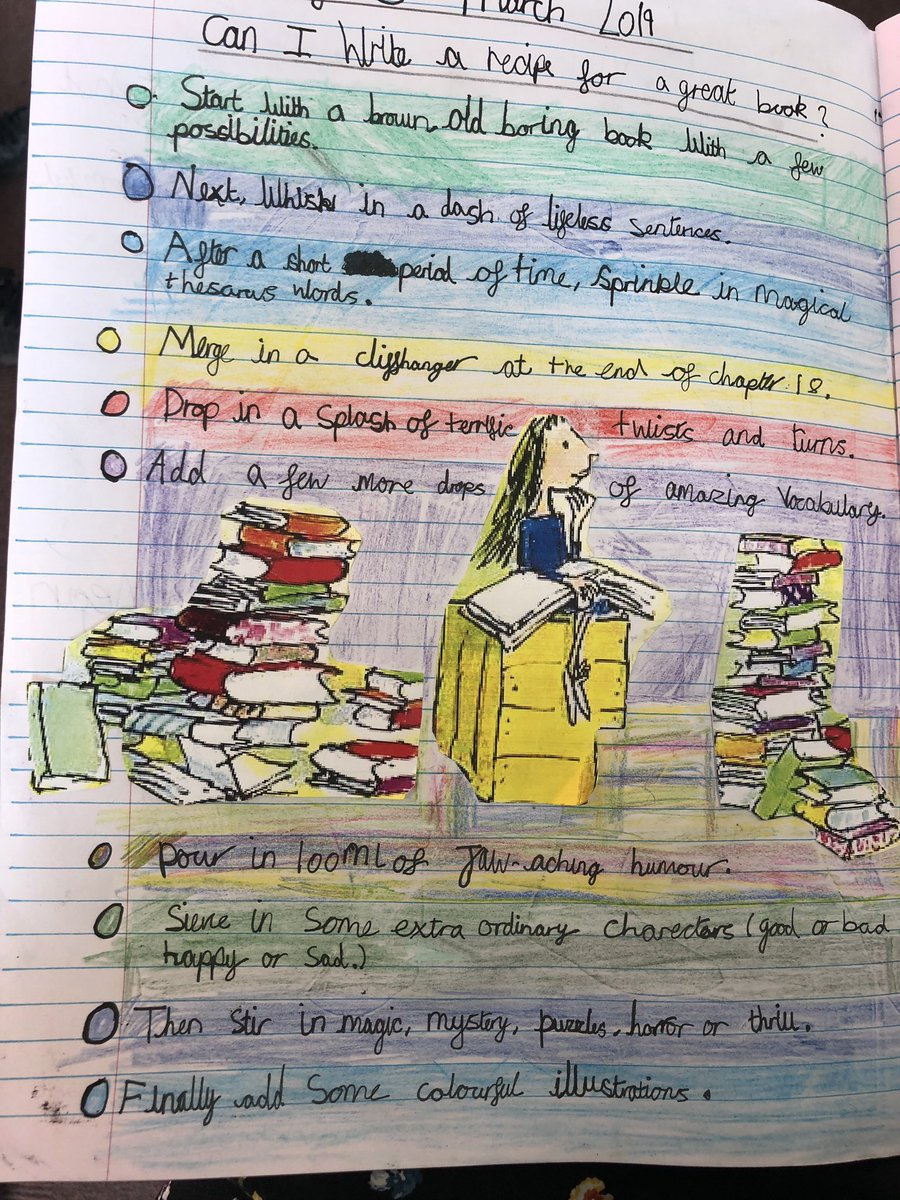 March 2019
Can I Write a recipe for a great book?
Start with a brown old boring book with a few
possibilities.
Next, Whisk in a dash of lifeless sentences.
After a short period of time, sprinkle in magical
thesarus words.
Merge in a cliffhanger at the end of chapter 18.
Drop in a splash of terrific twists and turns.
Add a few more drops of amazing vocabulary.
Pour in 100ml of Jaw-aching humour.
Sieve in some extra ordinary charectors (good or bad
happy or sad.)
Then stir in magic, mystery, puzzles, horror or thrill.
Finally add some colourful illustrations.